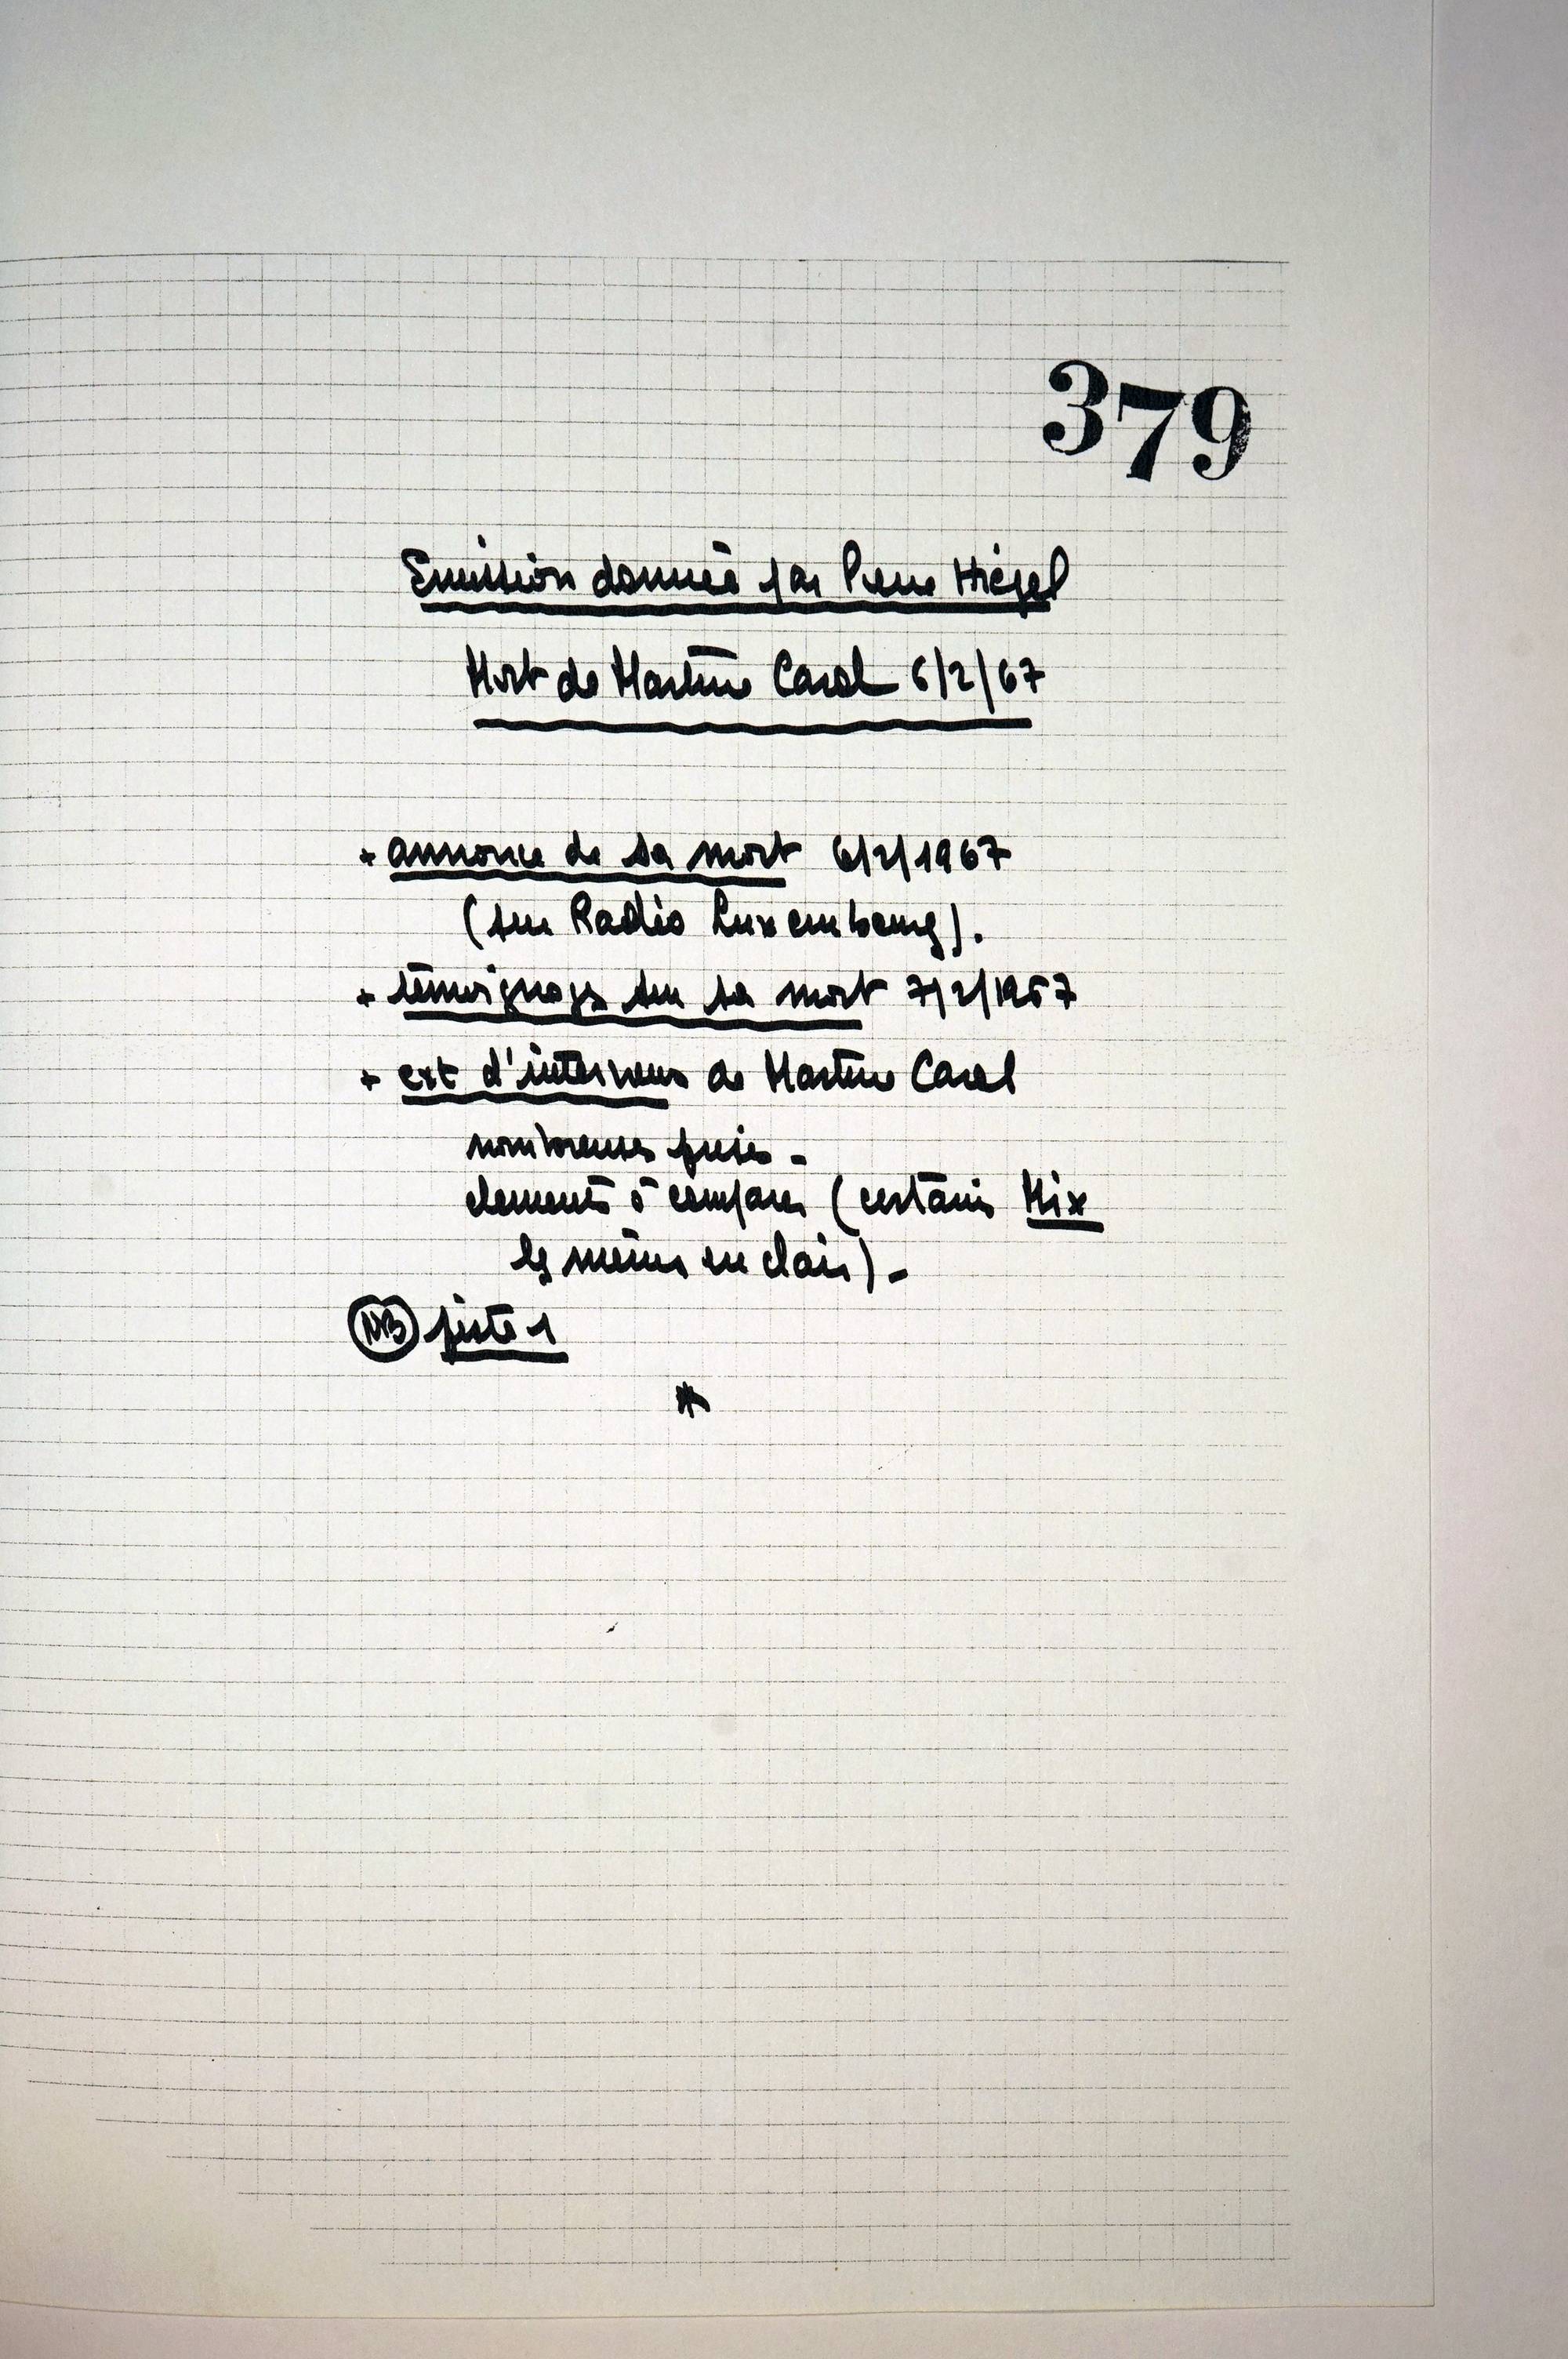 379
Emission donnée par Pierre Hiégel
Mort de Martine Carol 6/2/67
+ annonce de sa mort 6/2/1967
(sur Radio Luxembourg).
+ témoignages sur sa mort 7/2/1967
+ ext d'interviews de Martine Carol
nombreuses prises -
elements à comparer (certains Mix
les mêmes en clair) -
NB piste 1
*